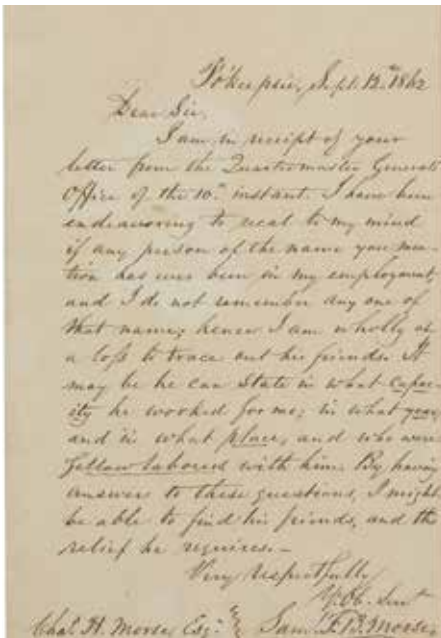 Po'keepsie, Sept. 12th 1862
Dear Sir,
I am in receipt of your
letter from the Quartermaster Generals
Office of the 10th instant. I have been
endeavoring to recal to my mind
if any person of the name you men-
tion has ever been in my employment,
and I do not remember any one of
that name; hence I am wholly at
a loss to trace out his friends. It
may be he can state in what capac-
ity he worked for me; in what year,
and in what place, and who were
fellow laborers with him. By having
answers to these questions, I might
be able to find his friends, and the
relief he requires.—
Very respectfully
Yr. Ob. Servt
Chas. H. Morse, Esqr. Saml. F. B. Morse.